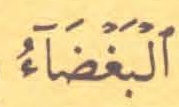 ٱلْبَغْضَآءُ